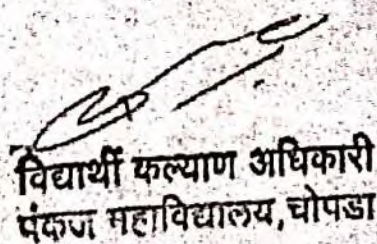 विद्यार्थी कल्याण अधिकारी
पंकज महाविद्यालय,चोपडा